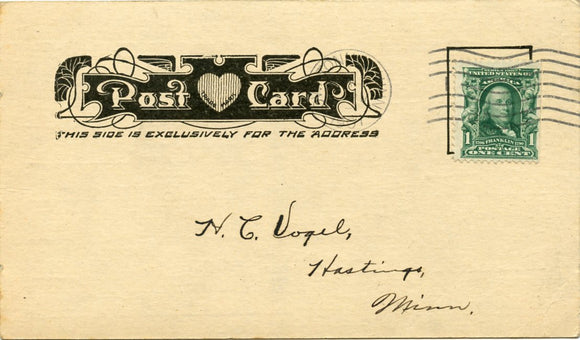 Post Card
THIS SIDE IS EXCLUSIVELY FOR THE ADDRESS
UNITED STATES OF
AMERICA
1 FRANKLIN 1
POSTAGE
ONE CENT
H. C. Vogel,
Hastings,
Minn.